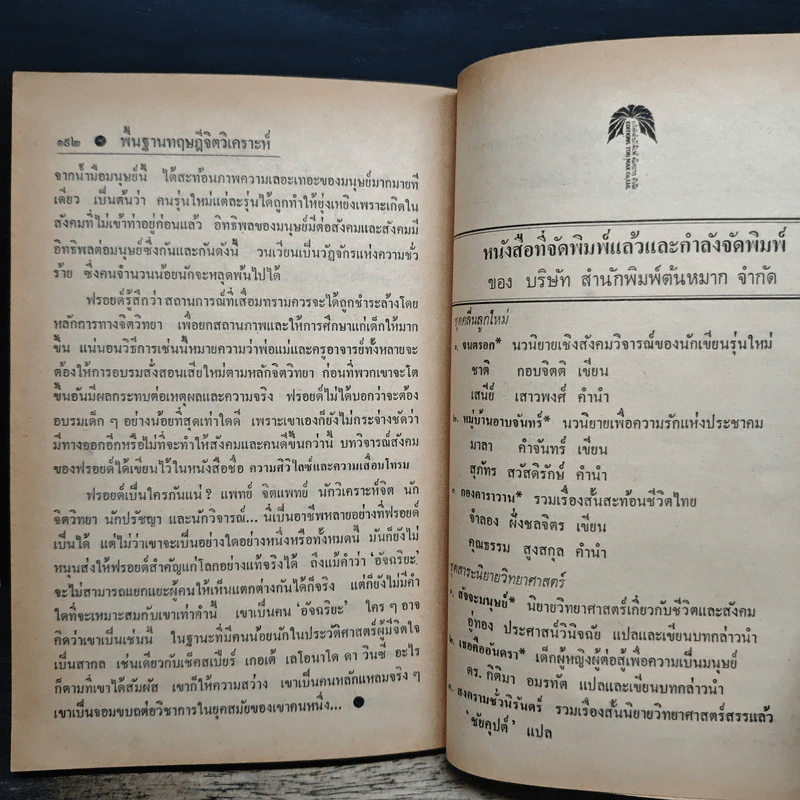 ๑๙๒ ● พื้นฐานทฤษฎีจิตวิเคราะห์
จากน้ำมือมนุษย์นี้ ได้สะท้อนภาพความเลอะเทอะของมนุษย์มากมายที
เดียว เป็นต้นว่า คนรุ่นใหม่แต่ละรุ่นได้ถูกทำให้ยุ่งเหยิงเพราะเกิดใน
สังคมที่ไม่เข้าท่าอยู่ก่อนแล้ว อิทธิพลของมนุษย์มีต่อสังคมและสังคมมี
อิทธิพลต่อมนุษย์ซึ่งกันและกันดังนี้ วนเวียนเป็นวัฏจักรแห่งความชั่ว
ร้าย ซึ่งคนจำนวนน้อยนักจะหลุดพ้นไปได้
ฟรอยด์รู้สึกว่าสถานการณ์ที่เสื่อมทรามควรจะได้ถูกชำระล้างโดย
หลักการทางจิตวิทยา เพื่อยกสถานภาพและให้การศึกษาแก่เด็กให้มาก
ขึ้น แน่นอนวิธีการเช่นนี้หมายความว่าพ่อแม่และครูอาจารย์ทั้งหลายจะ
ต้องให้การอบรมสั่งสอนเสียใหม่ตามหลักจิตวิทยา ก่อนที่พวกเขาจะโต
ขึ้นอันมีผลกระทบต่อเหตุผลและความจริง ฟรอยด์ไม่ได้บอกว่าจะต้อง
อบรมเด็ก ๆ อย่างน้อยที่สุดเท่าใดดี เพราะเขาเองก็ยังไม่กระจ่างชัดว่า
มีทางออกอีกหรือไม่ที่จะทำให้สังคมและคนดีขึ้นกว่านี้ บทวิจารณ์สังคม
ของฟรอยด์ได้เขียนไว้ในหนังสือชื่อ ความศิวิไลซ์และความเสื่อมโทรม
ฟรอยด์เป็นใครกันแน่ ? แพทย์ จิตแพทย์ นักวิเคราะห์จิต นัก
จิตวิทยา นักปรัชญา และนักวิจารณ์... นี่เป็นอาชีพหลายอย่างที่ฟรอยด์
เป็นได้ แต่ไม่ว่าเขาจะเป็นอย่างใดอย่างหนึ่งหรือทั้งหมดนี้ มันก็ยังไม่
หนุนส่งให้ฟรอยด์สำคัญแก่โลกอย่างแท้จริงได้ ถึงแม้คำว่า 'อัจฉริยะ'
จะไม่สามารถแยกแยะผู้คนให้เห็นแตกต่างกันได้ก็จริง แต่ก็ยังไม่มีคำ
ใดที่จะเหมาะสมกับเขาเท่าคำนี้ เขาเป็นคน 'อัจฉริยะ' ใคร ๆ อาจ
คิดว่าเขาเป็นเช่นนี้ ในฐานะที่มีคนน้อยนักในประวัติศาสตร์ผู้มีจิตใจ
เป็นสากล เช่นเดียวกับเช็คสเปียร์ เกอเต้ เลโอนาโด ดา วินซี อะไร
ก็ตามที่เขาได้สัมผัส เขาก็ให้ความสว่าง เขาเป็นคนหลักแหลมจริง ๆ
เขาเป็นจอมขบถต่อวิชาการในยุคสมัยของเขาคนหนึ่ง... ●
หนังสือที่จัดพิมพ์แล้วและกำลังจัดพิมพ์
ของ บริษัท สำนักพิมพ์ต้นหมาก จำกัด
ชุดคลื่นลูกใหม่
๑. จนตรอก* นวนิยายเชิงสังคมวิจารณ์ของนักเขียนรุ่นใหม่
ชาติ กอบจิตติ เขียน
เสนีย์ เสาวพงศ์ คำนำ
๒. หมู่บ้านอาบจันทร์* นวนิยายเพื่อความรักแห่งประชาคม
มาลา คำจันทร์ เขียน
สุภัทร สวัสดิรักษ์ คำนำ
๓. กองคาราวาน* รวมเรื่องสั้นสะท้อนชีวิตไทย
จำลอง ฝั่งชลจิตร เขียน
คุณธรรม สูงสกุล คำนำ
ชุดสาระนิยายวิทยาศาสตร์
๑. สัจจะมนุษย์* นิยายวิทยาศาสตร์เกี่ยวกับชีวิตและสังคม
อู่ทอง ประศาสน์วินิจฉัย แปลและเขียนบทกล่าวนำ
๒. เธอคืออันตรา* เด็กผู้หญิงผู้ต่อสู้เพื่อความเป็นมนุษย์
ดร. กิติมา อมรทัต แปลและเขียนบทกล่าวนำ
๓. สงครามชั่วนิรันดร์ รวมเรื่องสั้นนิยายวิทยาศาสตร์สรรแล้ว
'ชัยคุปต์' แปล